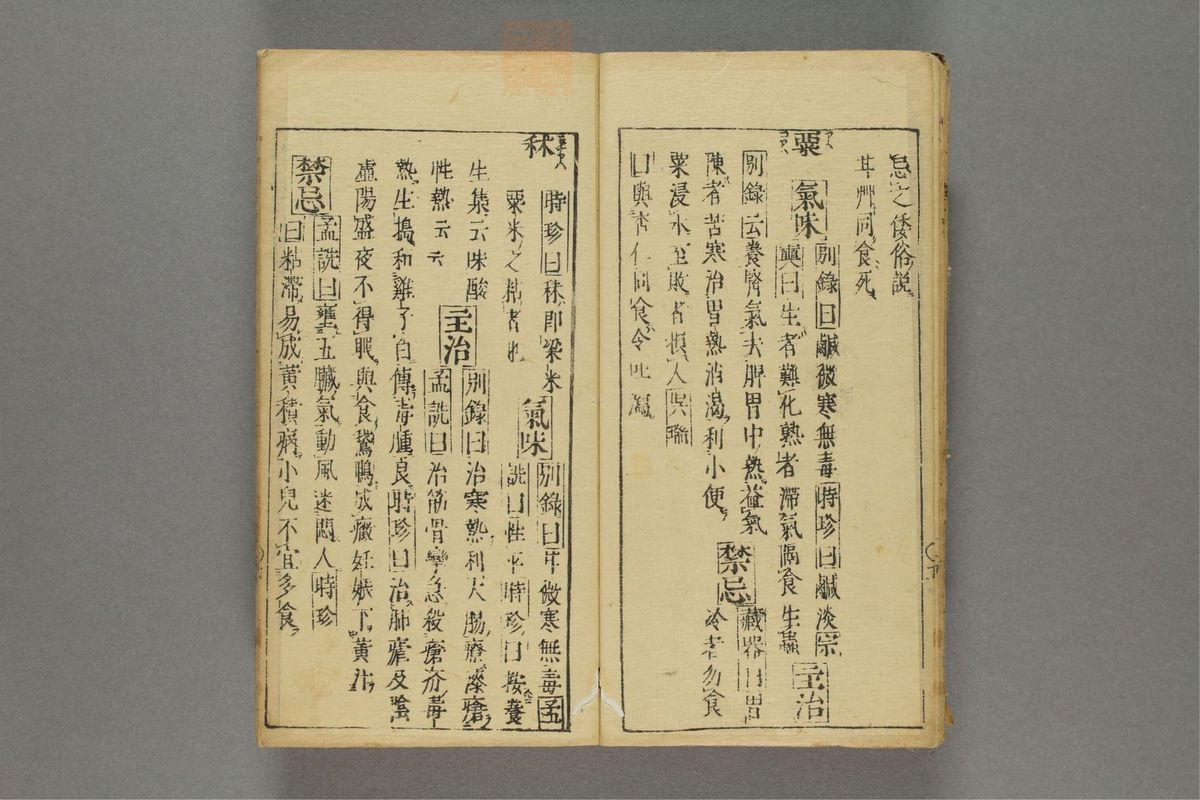 忌之倭俗説
甘艸同食死
粟
氣味
別錄曰鹹微寒無毒時珍曰鹹淡宗
奭曰生者難化熟者滯氣隔食生蟲
主治
別錄云養腎氣去脾胃中熱益氣
陳者苦寒治胃熱消渴利小便
禁忌
藏器曰胃
冷者勿食
粟浸水至敗者損人吳瑞
曰與杏仁同食令吐瀉
秫
時珍曰秫即粱米
粟米之粘者也
氣味
別錄曰甘微寒無毒孟
詵曰性平時珍曰按養
生集云味酸
性熱云云
主治
別錄曰治寒熱利大腸療漆瘡
孟詵曰治筋骨攣急殺瘡疥毒
熱生搗和雞子白傅毒腫良時珍曰治肺瘧及陰
虛陽盛夜不得眠與食鵞鴨成癥妊娠下黃汁
禁忌
孟詵曰壅五臟氣動風迷悶人時珍
曰粘滯易成黃積病小兒不宜多食